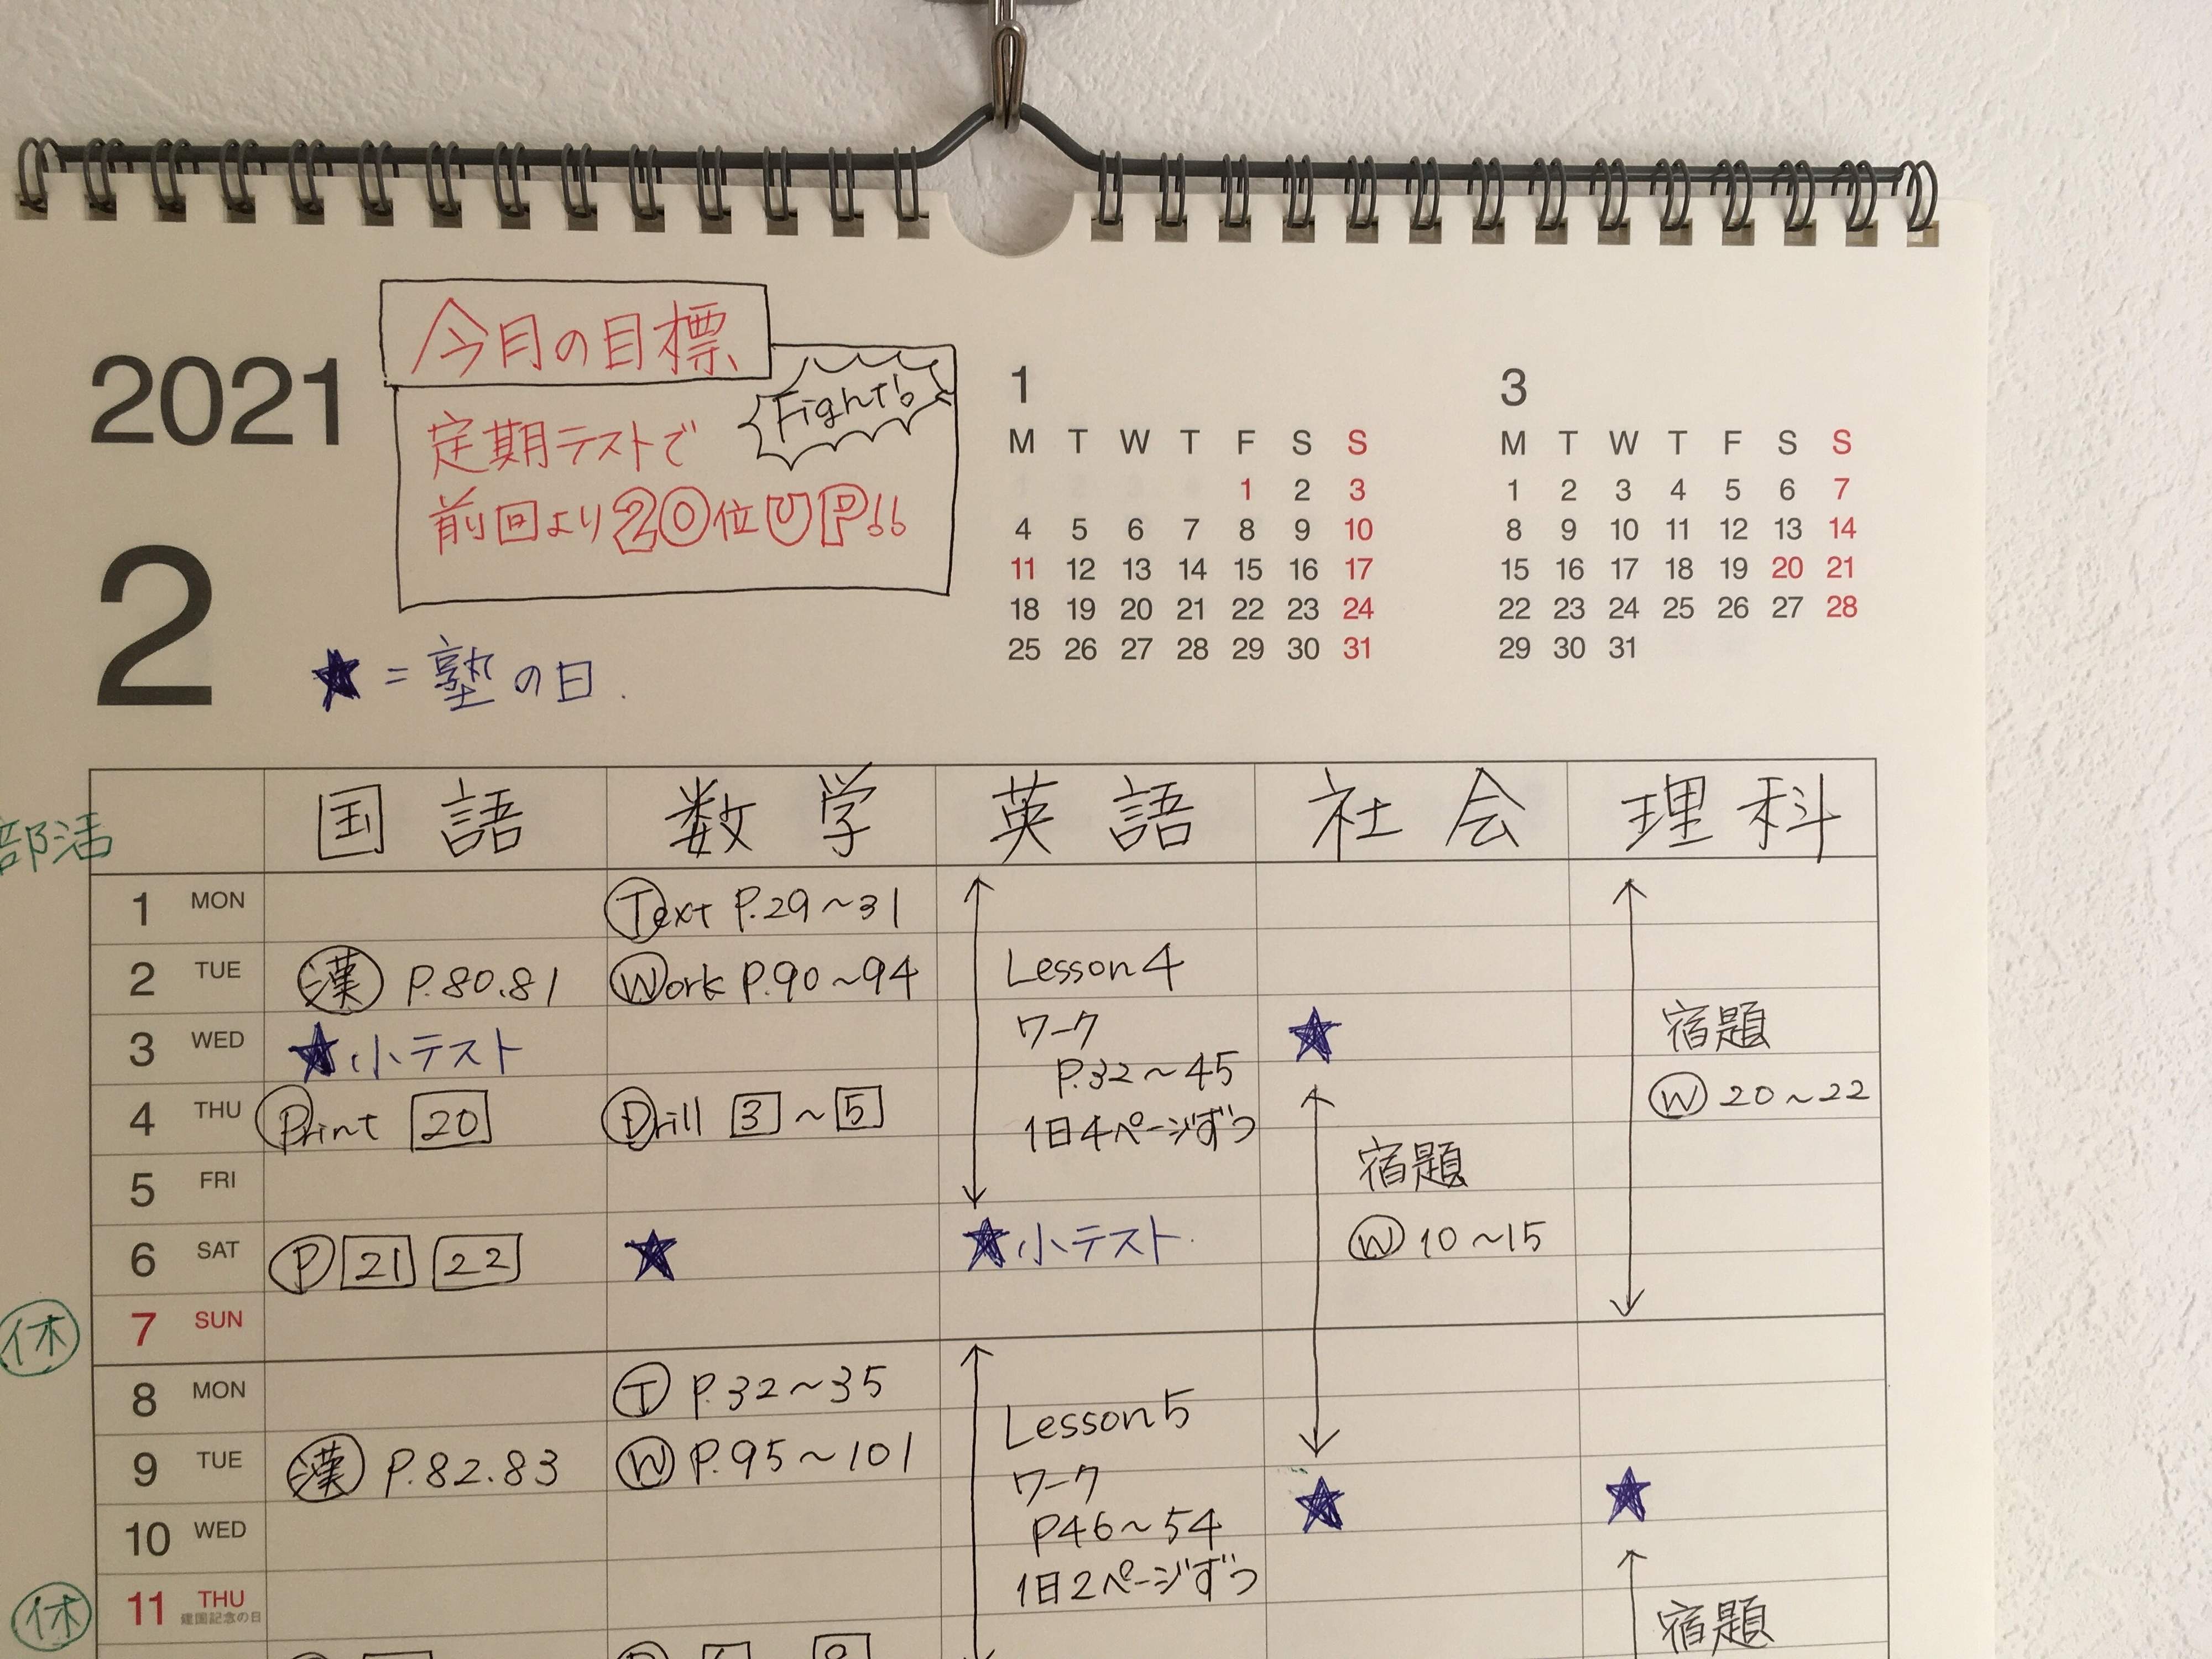 2021
2
今月の目標
Fight!
定期テストで
前回より20位UP!!
★=塾の日.
1
M T W T F S S
1 2 3
4 5 6 7 8 9 10
11 12 13 14 15 16 17
18 19 20 21 22 23 24
25 26 27 28 29 30 31
3
M T W T F S S
1 2 3 4 5 6 7
8 9 10 11 12 13 14
15 16 17 18 19 20 21
22 23 24 25 26 27 28
29 30 31
部活 国語 数学 英語 社会 理科
1 MON Text P.29~31
2 TUE 漢 P.80.81 Work P.90~94 Lesson4
3 WED ★小テスト ワーク ★ 宿題
P.32~45
4 THU Print 20 Drill 3~5 1日4ページずつ W 20~22
5 FRI 宿題
6 SAT P 21 22 ★ ★小テスト. W 10~15
休 7 SUN
8 MON T P.32~35 Lesson5
9 TUE 漢 P.82.83 W P.95~101 ワーク ★ ★
10 WED P46~54
休 11 THU 1日2ページずつ 宿題
建国記念の日